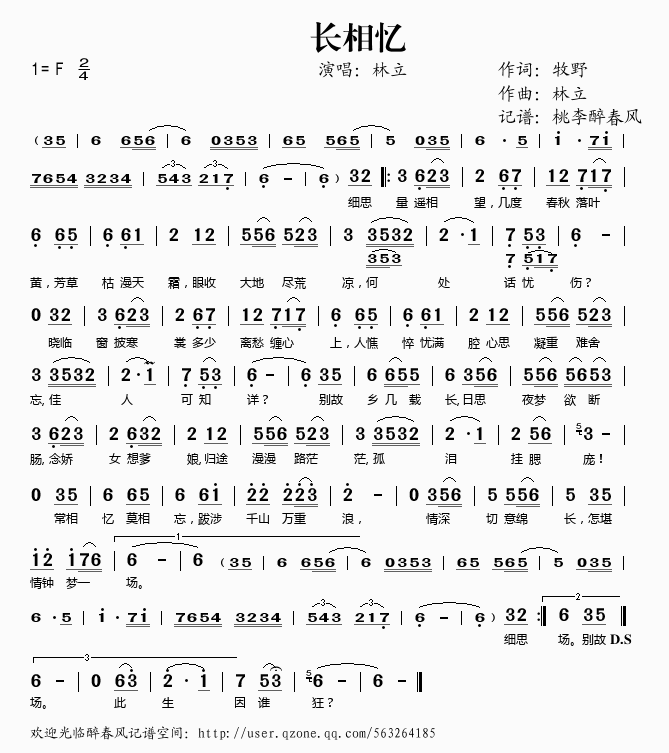 长相忆
1= F 2/4 演唱：林立 作词：牧野
作曲：林立
记谱：桃李醉春风
（35 | 6 656 | 6 0353 | 65 565 | 5 035 | 6 · 5 | i · 7i |
7654 3234 | 543 217 | 6 – | 6 ）32 |: 3 623 | 2 67 | 12 717 |
细思 量遥相 望，几度 春秋落叶
6 65 | 6 61 | 2 12 | 556 523 | 3 3532 | 2 · 1 | 7 53 | 6 – |
353 7 517
黄，芳草 枯漫天 霜，眼收 大地 尽荒 凉，何 处 话忧 伤？
0 32 | 3 623 | 2 67 | 12 717 | 6 65 | 6 61 | 2 12 | 556 523 |
晓临 窗披寒 裳多少 离愁缠心 上，人憔 悴忧满 腔心思 凝重 难舍
3 3532 | 2 · 1 | 7 53 | 6 – | 6 35 | 6 655 | 6 356 | 556 5653 |
忘，佳 人 可知 详？ 别故 乡几载 长，日思 夜梦 欲断
3 623 | 2 632 | 2 12 | 556 523 | 3 3532 | 2 · 1 | 2 56 | 5 3 – |
肠，念娇 女想爹 娘，归途 漫漫 路茫 茫，孤 泪 挂腮 庞！
0 35 | 6 65 | 6 6i | 22 223 | 2 – | 0 356 | 5 556 | 5 35 |
常相 忆莫相 忘，跋涉 千山万重 浪， 情深 切意绵 长，怎堪
1
i2 i76 | 6 – | 6 （35 | 6 656 | 6 0353 | 65 565 | 5 035 |
情钟 梦一 场。
2
6 · 5 | i · 7i | 7654 3234 | 543 217 | 6 – | 6 ）32 :| 6 35 ||
细思 场。别故 D.S
3
6 – | 0 63 | 2 · i | 7 53 | 5 6 – | 6 – ||
场。 此 生 因谁 狂？
欢迎光临醉春风记谱空间：http://user.qzone.qq.com/563264185